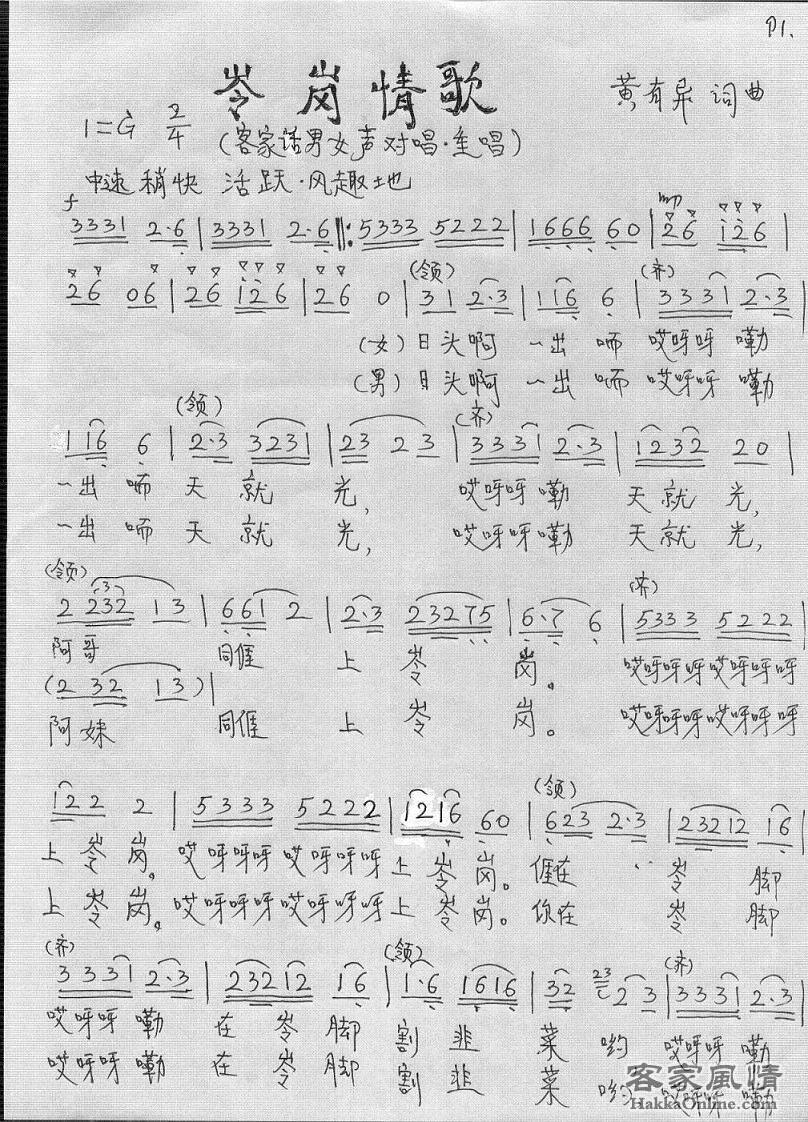 P1.
岺岗情歌
黄有异 词曲
1=G 2/4
(客家话男女声对唱·重唱)
中速稍快 活跃·风趣地
f
3331 2·6 | 3331 2·6 ‖: 5333 5222 | 1666 60 | 26 126 |
mp
26 06 | 26 126 | 26 0 | 31 2·3 | 116 6 | 3331 2·3 |
(领) (齐)
(女) 日头啊 一出啊 哎呀呀 嘞
(男) 日头啊 一出啊 哎呀呀 嘞
(领) (齐)
116 6 | 2·3 3231 | 23 2 3 | 3331 2·3 | 1232 20 |
一出啊 天就光, 哎呀呀嘞 天就光,
一出啊 天就光, 哎呀呀嘞 天就光,
(领) (齐)
2 232 13 | 661 2 | 2·3 23275 | 6·7 6 | 5333 5222 |
3
阿哥 同𠊎 上岺岗。 哎呀呀呀哎呀呀呀
(2 32 13) |
阿妹 同𠊎 上岺岗。 哎呀呀呀哎呀呀呀
(领)
122 2 | 5333 5222 | 1216 60 | 623 2·3 | 23212 16 |
上岺岗。哎呀呀呀 哎呀呀呀上岺岗。𠊎在 岺脚
上岺岗。哎呀呀呀哎呀呀呀上岺岗。你在 岺脚
(齐) (领) (齐)
3331 2·3 | 23212 16 | 1·6 1616 | 32 23 2 3 | 3331 2·3 |
哎呀呀嘞 在岺脚 割韭菜哟 哎呀呀嘞
哎呀呀嘞 在岺脚 割韭菜哟 哎呀呀嘞
客家風情
HakkaOnline.com